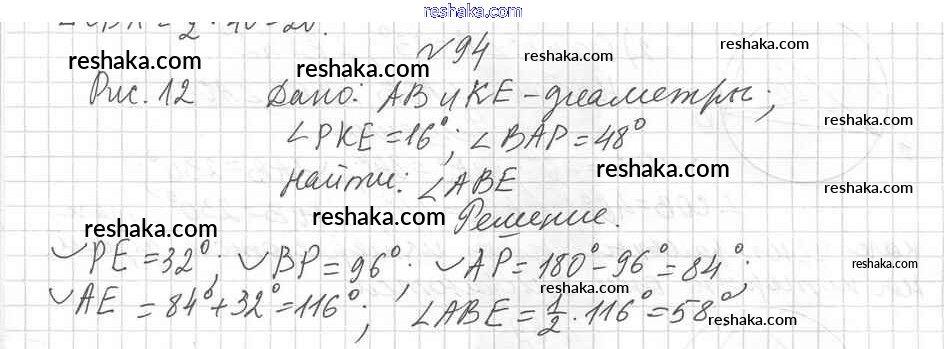 reshaka.com
∪PK = 2 · 40 = 20°.
№94
Рис. 12 Дано: AB и KE - диаметры;
∠PKE = 16°; ∠BAP = 48°
Найти: ∠ABE
Решение.
∪PE = 32°; ∪BP = 96°; ∪AP = 180° - 96° = 84°;
∪AE = 84° + 32° = 116°; ∠ABE = 1/2 · 116° = 58°
reshaka.com
reshaka.com
reshaka.com
reshaka.com
reshaka.com
reshaka.com
reshaka.com
reshaka.com
reshaka.com
reshaka.com
reshaka.com
reshaka.com